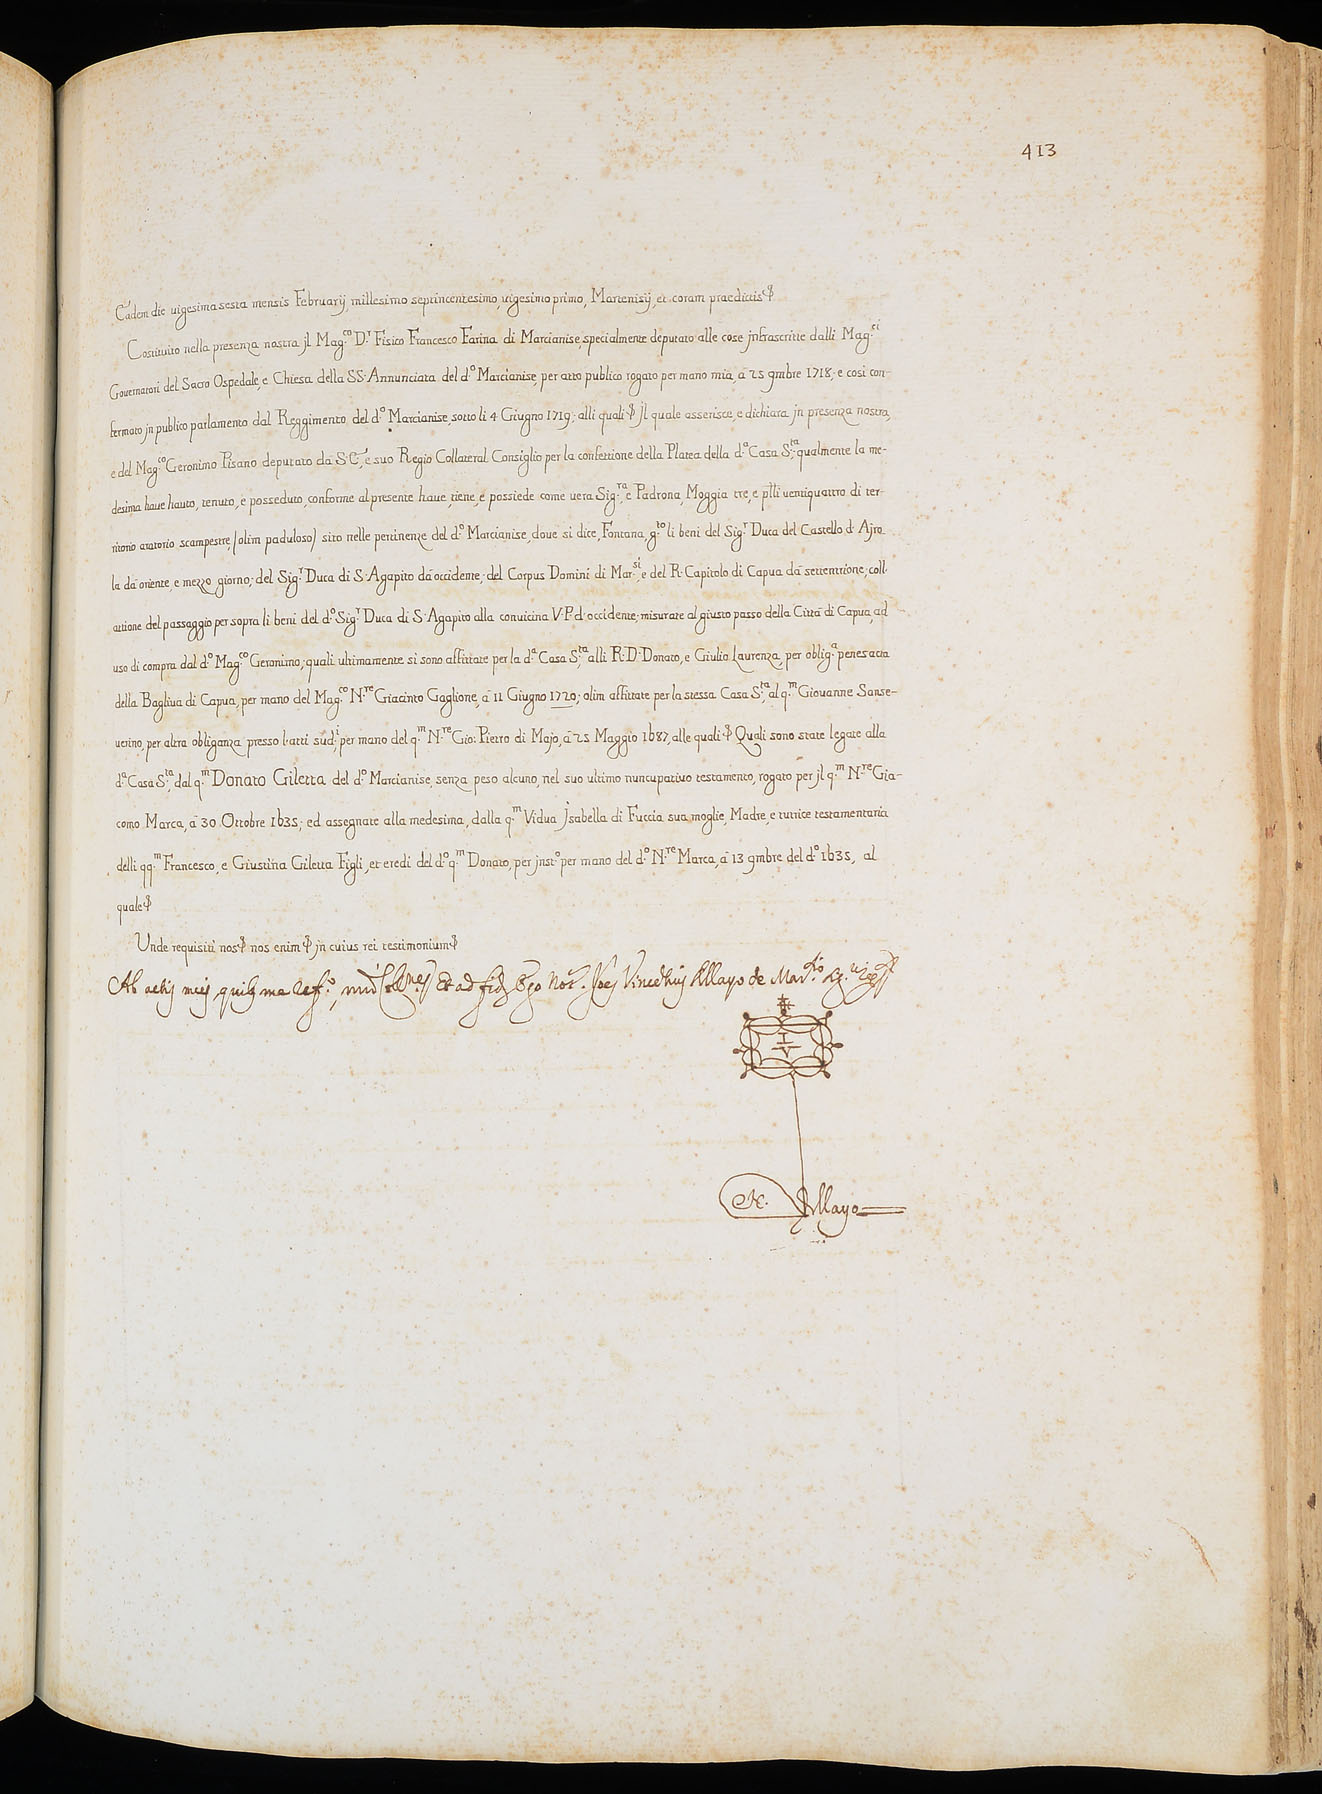 413
Eadem die uigesimasexta mensis Februarij, millesimo septincentesimo, uigesimo primo, Martenisij, et coram praedictis
Costituito nella presenza nostra jl Mag.co D.r Fisico Francesco Farina di Marcianise, specialmente deputato alle cose jnfrascritte dalli Mag.ci
Gouernatori del Sacro Ospedale, e Chiesa della SS. Annunciata del d.o Marcianise, per atto publico rogato per mano mia, à 25 9mbre 1718; e così con-
fermato jn publico parlamento dal Reggimento del d.o Marcianise, sotto li 4 Giugno 1719; alli quali jl quale asserisce, e dichiara jn presenza nostra,
e del Mag.co Geronimo Pisano deputato da S. C., e suo Regio Collateral Consiglio per la confettione della Platea della d.a Casa S.ta qualmente la me-
desima haue hauto, tenuto, e posseduto, conforme al presente haue, tiene, e possiede come uera Sig.ra, e Padrona, Moggia tre, e p̃lli uentiquattro di ter-
ritorio aratorio scampestre, (olim paduloso) sito nelle pertinenze del d.o Marcianise, doue si dice, Fontana, g.to li beni del Sig.r Duca del Castello d' Ajro-
la dà oriente, e mezzo giorno; del Sig.r Duca di S. Agapito dà occidente; del Corpus Domini di Mar.si, e del R. Capitolo di Capua dà settentrione; coll'
attione del passaggio per sopra li beni del d.o Sig.r Duca di S. Agapito alla conuicina V. P. d' occidente; misurate al giusto passo della Città di Capua, ad
uso di compra dal d.o Mag.co Geronimo; quali ultimamente si sono affittate per la d.a Casa S.ta alli R. D. Donato, e Giulio Laurenza, per oblig.a penes acta
della Bagliua di Capua, per mano del Mag.co N.re Giacinto Gaglione, à 11 Giugno 1720; olim affittate per la stessa Casa S.ta, al q.m Giouanne Sanse-
uerino, per altra obliganza presso l'atti sud.i per mano del q.m N.re Gio: Pietro di Majo, à 25 Maggio 1687, alle quali Quali sono state legate alla
d.a Casa S.ta, dal q.m Donato Giletta del d.o Marcianise, senza peso alcuno, nel suo ultimo nuncupatiuo testamento, rogato per jl q.m N.re Gia-
como Marca, à 30 Ottobre 1635; ed assegnate alla medesima, dalla q.m Vidua Jsabella di Fuccia sua moglie, Madre, e tutrice testamentaria
delli qq.m Francesco, e Giustina Giletta Figli, et eredi del d.o q.m Donato, per jnst.o per mano del d.o N.re Marca, à 13 9mbre del d.o 1635, al
quale
Unde requisiti nos nos enim jn cuius rei testimonium
Ab actis meis, quibus me Ego Not.s Vincentius de Mayo de
I V
de Mayo